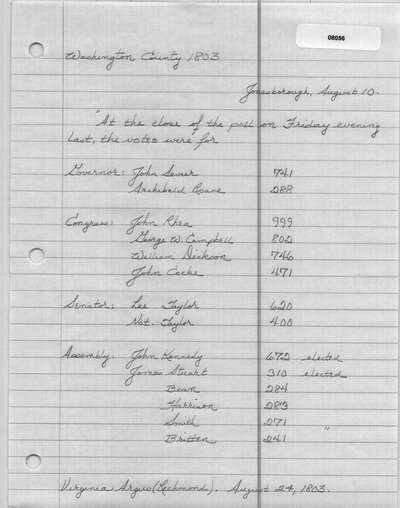 08056
Washington County 1803
Jonesborough, August 10.
"At the close of the poll on Friday evening
last, the votes were for
Governor: John Sevier 741
Archibald Roane 288
Congress: John Rhea 999
George W. Campbell 802
William Dickson 746
John Cocke 471
Senator: Lee Taylor 620
Nat. Taylor 400
Assembly: John Kennedy 672 elected
James Stuart 310 elected
Bean 284
Harrison 283
Smith 271
Britten 241 "
Virginia Argus (Richmond). August 24, 1803.